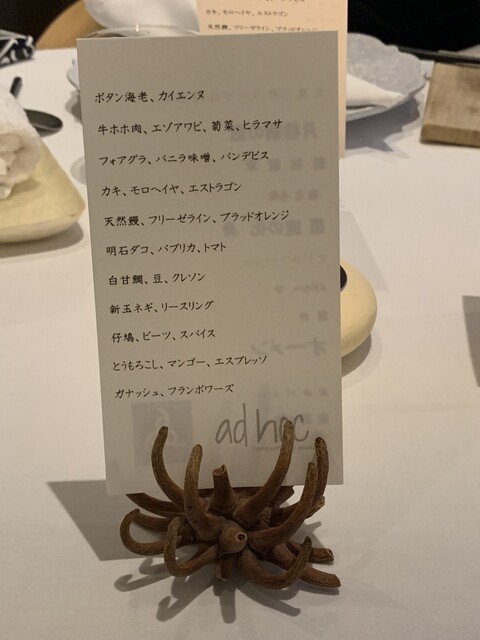 カキ、モロヘイヤ、エストラゴン
天然鰻、フリーゼライン、ブラッドオレンジ
ボタン海老、カイエンヌ
牛ホホ肉、エゾアワビ、菊菜、ヒラマサ
フォアグラ、バニラ味噌、パンデピス
カキ、モロヘイヤ、エストラゴン
天然鰻、フリーゼライン、ブラッドオレンジ
明石ダコ、パプリカ、トマト
白甘鯛、豆、クレソン
新玉ネギ、リースリング
仔鳩、ビーツ、スパイス
とうもろこし、マンゴー、エスプレッソ
ガナッシュ、フランボワーズ
ad hoc